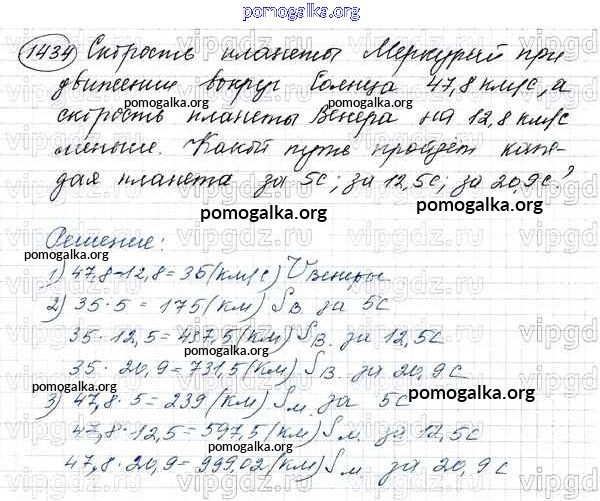 pomogalka.org
1434 Скорость планеты Меркурий при
движении вокруг Солнца 47,8 км/с, а
pomogalka.org
скорость планеты Венера на 12,8 км/с
меньше. Какой путь пройдёт каж-
дая планета за 5с; за 12,5с; за 20,9с?
pomogalka.org pomogalka.org
Решение:
pomogalka.org
1) 47,8-12,8=35(км/с) Vвенеры
2) 35·5 = 175(км) Sв. за 5с
35·12,5=437,5(км) Sв. за 12,5с
pomogalka.org
35·20,9=731,5(км) Sв. за 20,9с
pomogalka.org pomogalka.org
3) 47,8·5=239(км) Sм. за 5с
47,8·12,5=597,5(км) Sм за 12,5с
47,8·20,9=999,02(км) Sм за 20,9с
pomogalka.org pomogalka.org